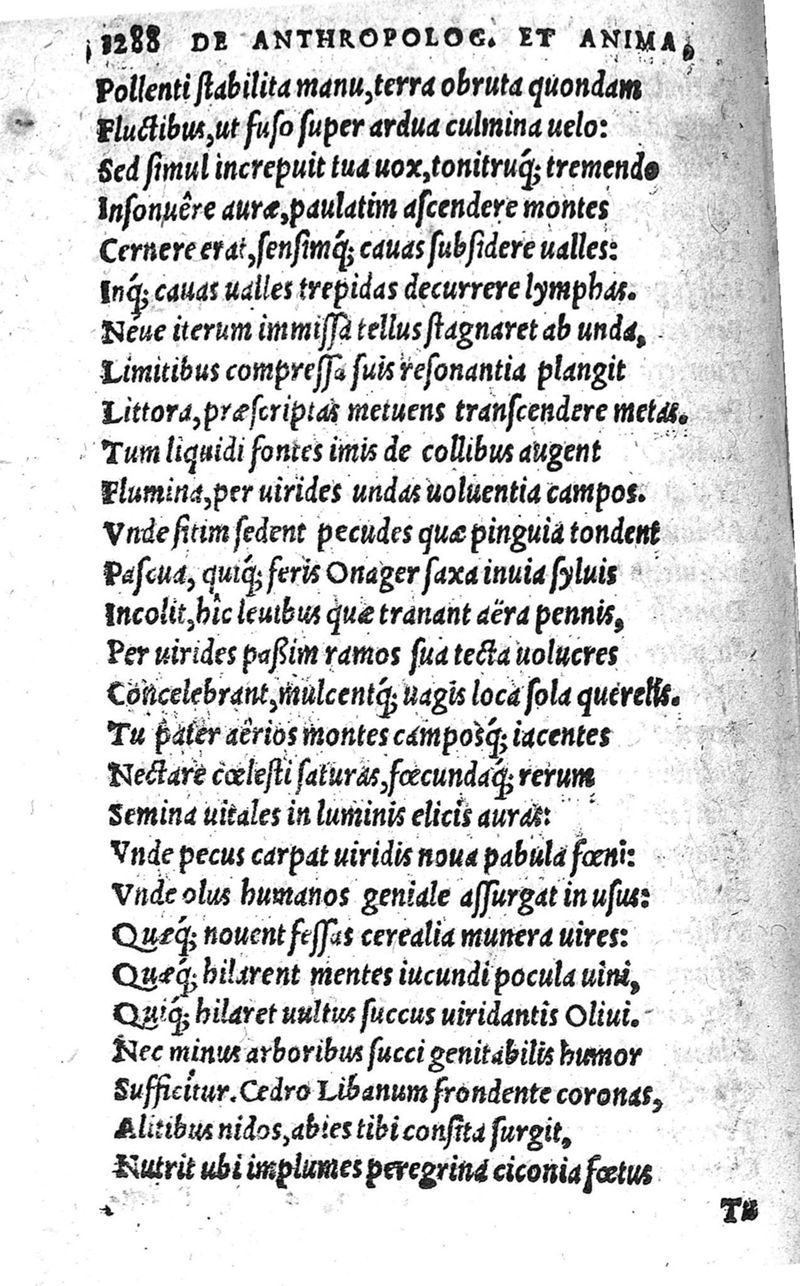 1288 DE ANTHROPOLOG. ET ANIMA,
Pollenti ſtabilita manu, terra obruta quondam
Fluctibus, ut fuſo ſuper ardua culmina uelo:
Sed ſimul increpuit tua uox, tonitruq́; tremendo
Inſonuêre auræ, paulatim aſcendere montes
Cernere erat, ſenſimq́; cauas ſubſidere ualles:
Inq́; cauas ualles trepidas decurrere lymphas.
Néue iterum immiſſa tellus ſtagnaret ab unda,
Limitibus compreſſa ſuis reſonantia plangit
Littora, præſcriptas metuens tranſcendere metas.
Tum liquidi fontes imis de collibus augent
Flumina, per uirides undas uoluentia campos.
Vnde ſitim ſedent pecudes quæ pinguia tondent
Paſcua, quiq́; feris Onager ſaxa inuia ſyluis
Incolit, hîc leuibus quæ tranant aëra pennis,
Per uirides paßim ramos ſua tecta uolucres
Concelebrant, mulcentq́; uagis loca ſola querelis.
Tu pater aërios montes camposq́; iacentes
Nectare cœleſti ſaturas, fœcundaq́; rerum
Semina uitales in luminis elicis auras:
Vnde pecus carpat uiridis noua pabula fœni:
Vnde olus humanos geniale aſſurgat in uſus:
Quæq́; nouent feſſas cerealia munera uires:
Quæq́; hilarent mentes iucundi pocula uini,
Quiq́; hilaret uultus ſuccus uiridantis Oliui.
Nec minus arboribus ſucci genitabilis humor
Sufficitur. Cedro Libanum frondente coronas,
Alitibus nidos, abies tibi conſita ſurgit,
Nutrit ubi implumes peregrina ciconia fœtus
Tu